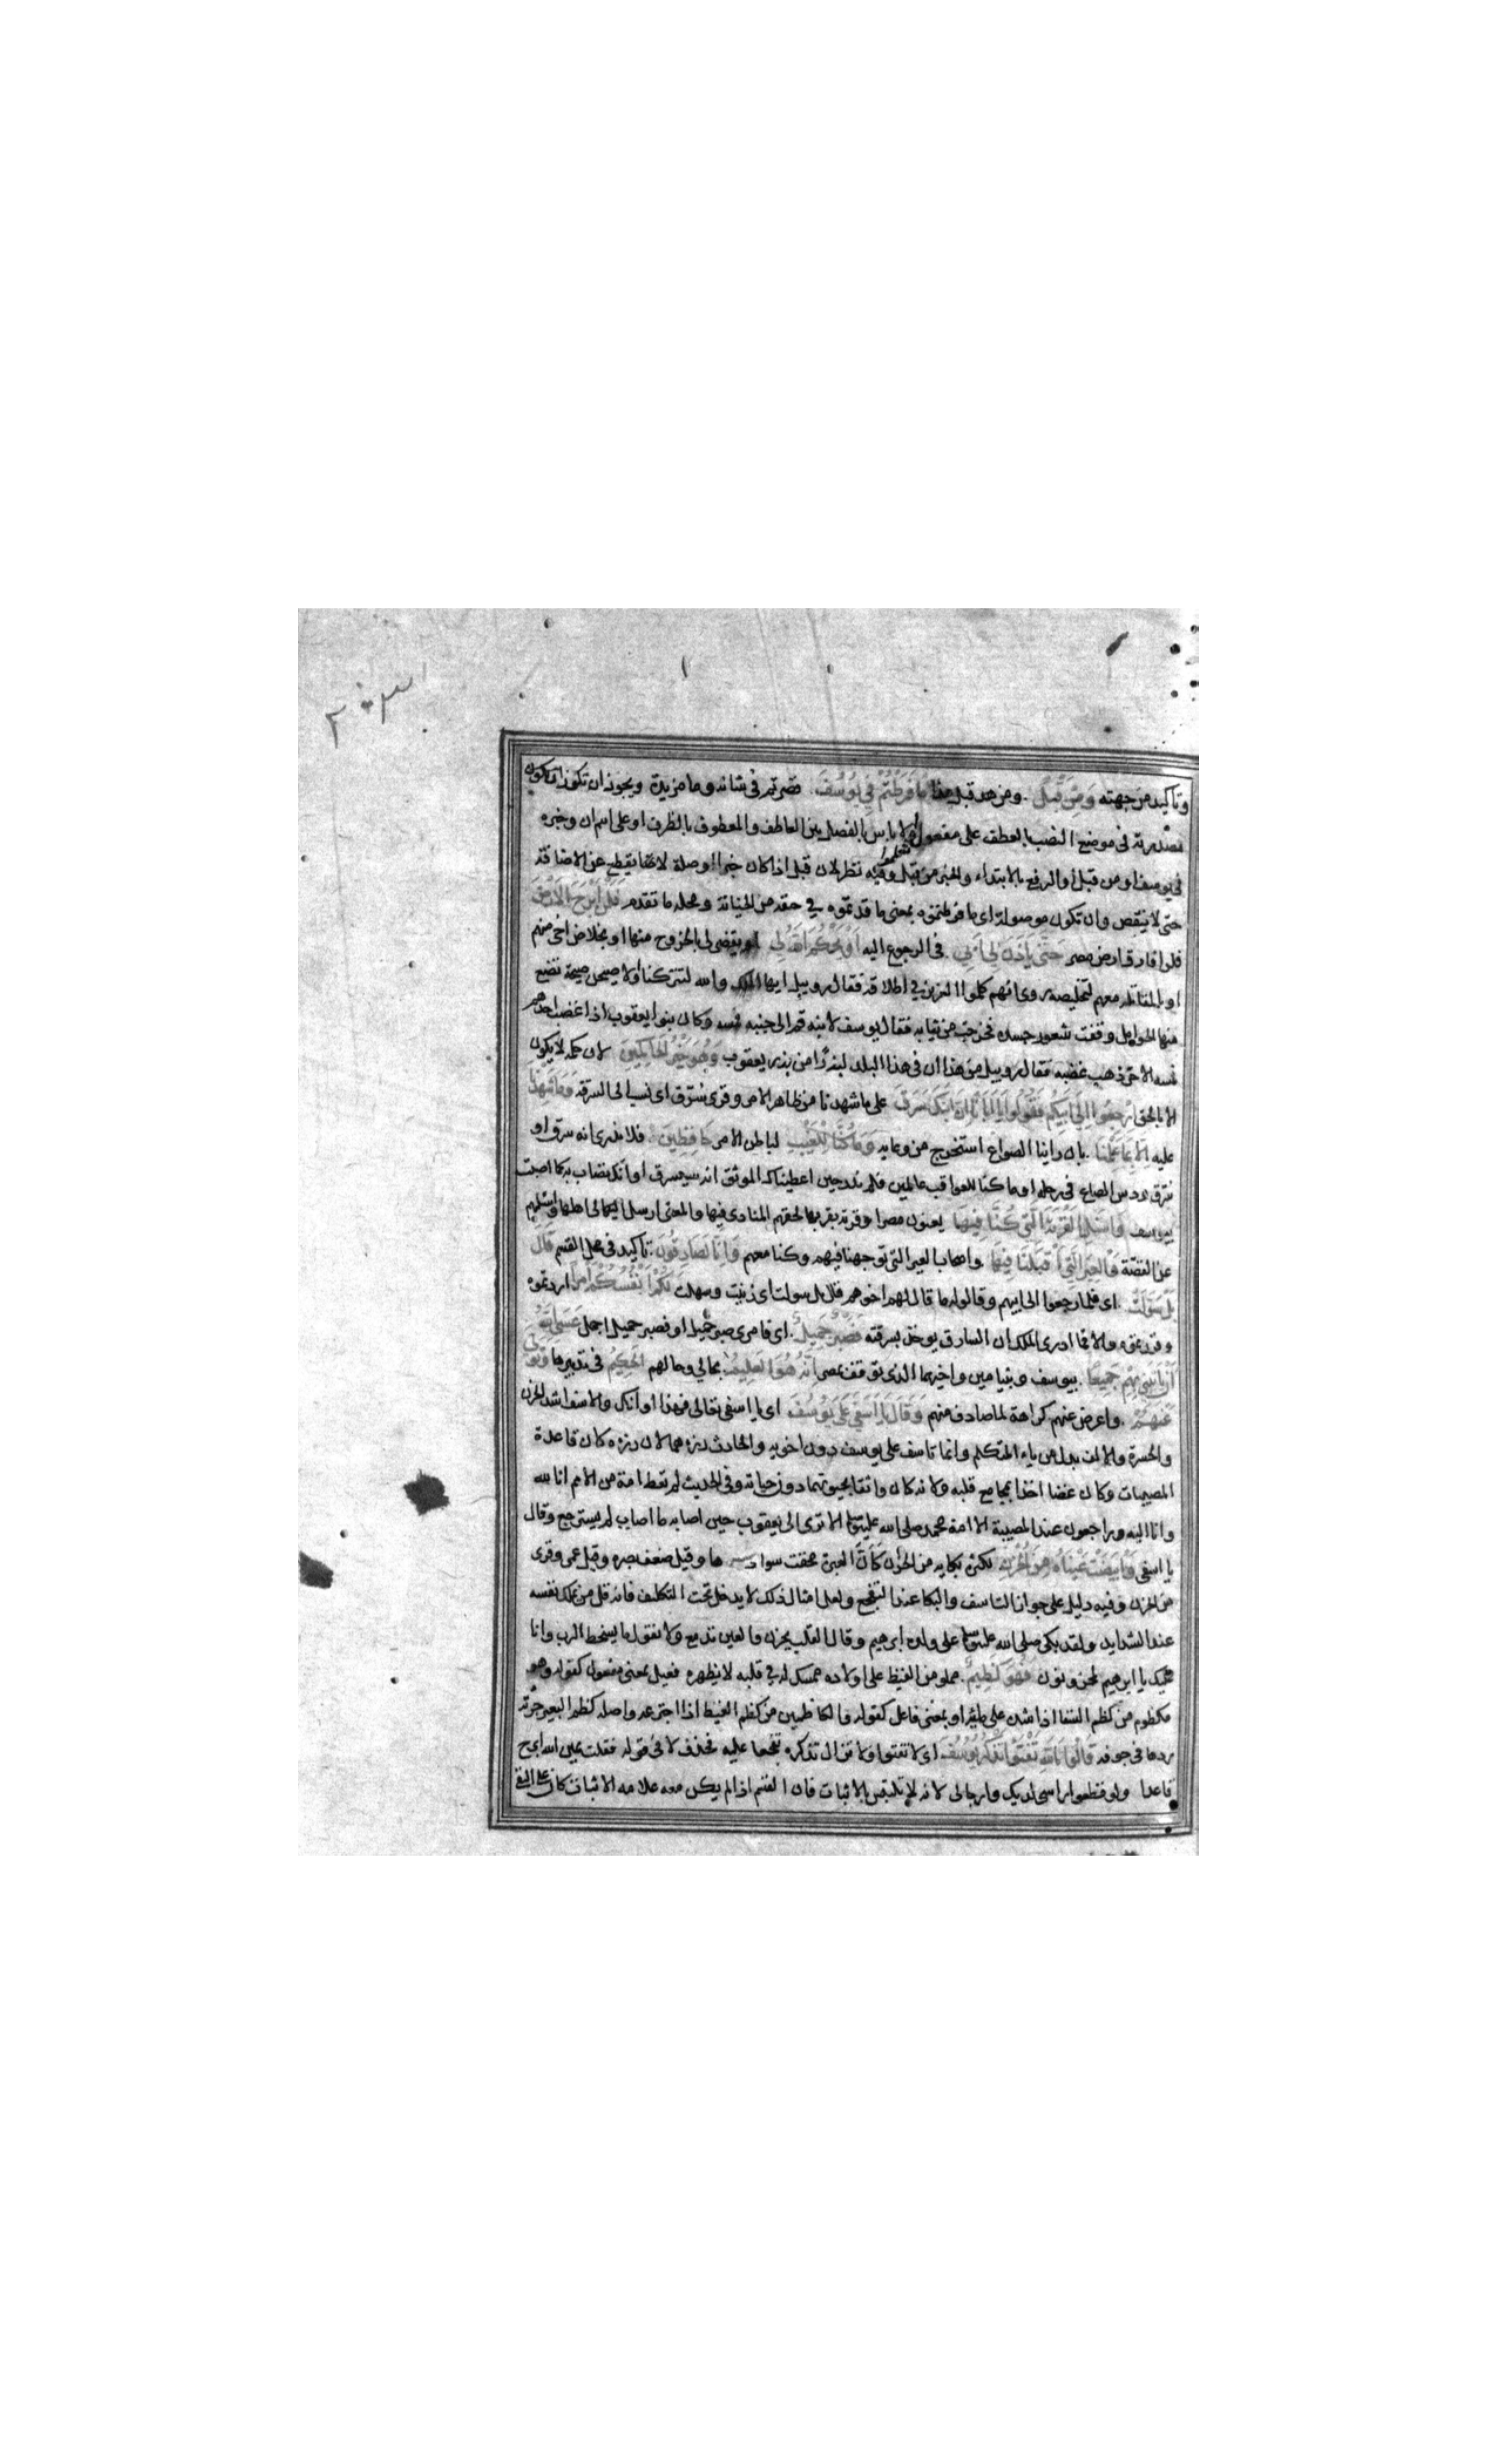 ٢٠٣
وتاكيد من جهته وَمِنْ قَبْلُ . ومن قبل هذا مَا فَرَّطْتُمْ فِي يُوسُفَ . قصرتم في شانه وما مزيدة ويجوز ان تكون
مصدرية في موضع النصب بالعطف على مفعول تعلموا ولا باس بالفصل بين العاطف والمعطوف بالظرف او على اسم ان وخبره
في يوسف او من قبل او الرفع بالابتداء والخبر من قبل وفيه نظر لان قبل اذا كان خبرا او صلة لا يقطع عن الاضافة
حتى لا ينقص وان تكون موصولة اى ما فرطتموه بمعنى ما قدمتموه في حقه من الخيانة ومحله ما تقدم فَلَنْ أَبْرَحَ الْأَرْضَ
فلن افارق ارض مصر حَتَّى يَأْذَنَ لِي أَبِي . في الرجوع اليه أَوْ يَحْكُمَ اللَّهُ لِي او يقضى لى بالخروج منها او بخلاص اخى منهم
او بالمقاتلة معهم لتخليصه روى انهم كلموا العزيز في اطلاقه فقال روبيل ايها الملك والله لتتركنا او لاصيحن صيحة تضع
منها الحوامل ووقفت شعور جسده فخرجت من ثيابه فقال يوسف لابنه قم الى جنبه فمسه وكان بنوا يعقوب اذا غضب احدهم
فمسه الاخر ذهب غضبه فقال روبيل من هذا ان في هذا البلد لبذرا من بذر يعقوب وَهُوَ خَيْرُ الْحَاكِمِينَ لان حكمه لا يكون
الا بالحق ارْجِعُوا إِلَى أَبِيكُمْ فَقُولُوا يَا أَبَانَا إِنَّ ابْنَكَ سَرَقَ على ما شهدنا من ظاهر الامر وقرى سُرّق اى نسب الى السرقة وَمَا شَهِدْنَا
عليه إِلَّا بِمَا عَلِمْنَا . بان راينا الصواع استخرج من وعايه وَمَا كُنَّا لِلْغَيْبِ لباطن الامر حَافِظِينَ . فلا ندرى انه سرق او
سرق ودس الصاع في رحله او ما كنا للعواقب عالمين فلم ندر حين اعطيناك الموثق انه سيسرق او انك تصاب به كما اصبت
بيوسف وَاسْئَلِ الْقَرْيَةَ الَّتِي كُنَّا فِيهَا يعنون مصر او قرية بقربها لحقهم المنادى فيها والمعنى ارسل الى اهلها واسئلهم
عن القصة وَالْعِيرَ الَّتِي أَقْبَلْنَا فِيهَا واصحاب العير التى توجهنا فيهم وكنا معهم وَإِنَّا لَصَادِقُونَ . تاكيد في محل القسم قَالَ
بَلْ سَوَّلَتْ . اى فلما رجعوا الى ابيهم وقالوا له ما قال لهم اخوهم قال بل سولت اى زينت وسهلت لَكُمْ أَنْفُسُكُمْ أَمْرًا اردتموه
وقدرتموه والا فما ادرى الملك ان السارق يوخذ بسرقته فَصَبْرٌ جَمِيلٌ . اى فامرى صبر جميل او فصبر جميل اجمل عَسَى اللَّهُ
أَنْ يَأْتِيَنِي بِهِمْ جَمِيعًا . بيوسف وبنيامين واخيهما الذى توقف بمصر إِنَّهُ هُوَ الْعَلِيمُ بحالي وحالهم الْحَكِيمُ في تدبيرها وَتَوَلَّى
عَنْهُمْ . واعرض عنهم كراهة لما صادف منهم وَقَالَ يَا أَسَفَى عَلَى يُوسُفَ اى يا اسفى تعالى فهذا اوانك والاسف اشد الحزن
والحسرة والالف بدل من ياء المتكلم وانما تاسف على يوسف دون اخويه والحادث رزءهما لان رزءه كان قاعدة
المصيبات وكان غضا اخذا بمجامع قلبه ولانه كان واثقا بحيوتهما دون حياته وفي الحديث لم تعط امة من الامم انا لله
وانا اليه راجعون عند المصيبة الا امة محمد صلى الله عليه وسلم الا ترى الى يعقوب حين اصابه ما اصاب لم يسترجع وقال
يا اسفى وَابْيَضَّتْ عَيْنَاهُ مِنَ الْحُزْنِ لكثرة بكايه من الحزن كَأَنَّ العبرة محقت سوادهما وقيل ضعف بصره وقيل عمى وقرى
من الحزن وفيه دليل على جواز التاسف والبكا عند التفجع ولعل امثال ذلك لا يدخل تحت التكليف فانه قل من يملك نفسه
عند الشدايد ولقد بكى صلى الله عليه وسلم على ولده ابرهيم وقال القلب يحزن والعين تدمع ولا نقول ما يسخط الرب وانا
عليك يا ابرهيم لمحزونون فَهُوَ كَظِيمٌ . مملو من الغيظ على اولاده ممسك له في قلبه لا يظهره فعيل بمعنى مفعول كقوله وهو
مكظوم من كظم السقا اذا شده على ملئه او بمعنى فاعل كقوله والكاظمين من كظم الغيظ اذا اجترعه واصله كظم البعير جرته
ردها في جوفه قَالُوا تَاللَّهِ تَفْتَؤُا تَذْكُرُ يُوسُفَ اى لا تفتوا ولا تزال تذكره تفجعا عليه فحذف لا كما في قوله فقلت يمين الله ابرح
قاعدا ولو قطعوا راسى لديك واوصالى لانه لا يلتبس بالاثبات فان القسم اذا لم يكن معه علامة الاثبات كان على النفى